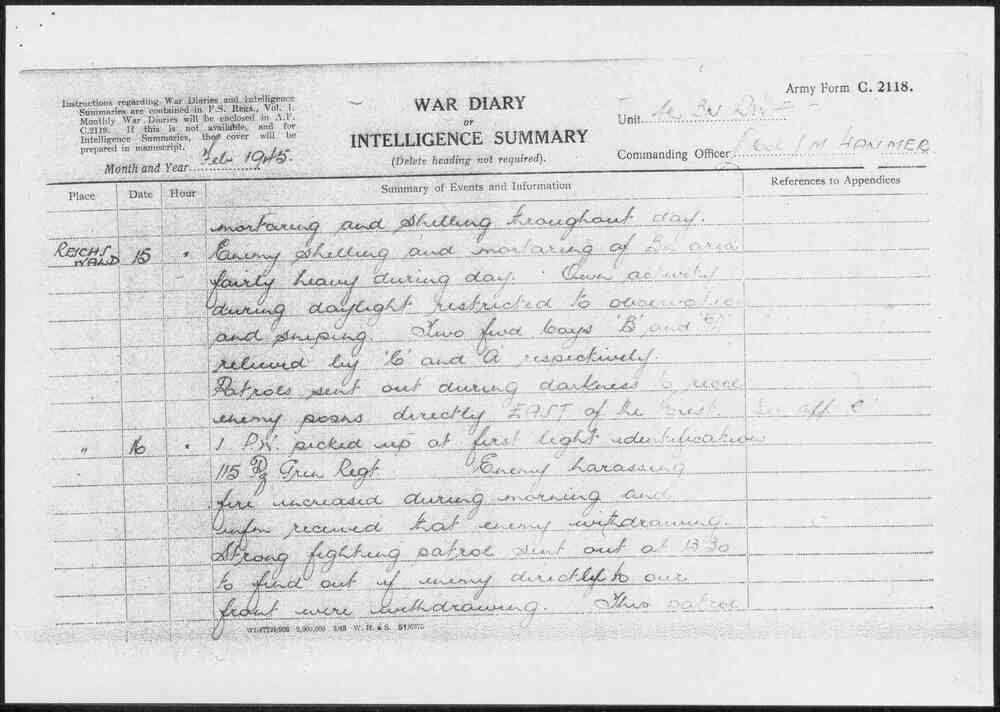 Instructions regarding War Diaries and Intelligence
Summaries are contained in F.S. Regs., Vol. I.
Monthly War Diaries will be enclosed in A.F.
C.2118. If this is not available, and for
Intelligence Summaries, the cover will be
prepared in manuscript.
Month and Year Feb 1945.
WAR DIARY
or
INTELLIGENCE SUMMARY
(Delete heading not required).
Army Form C. 2118.
Unit Bn
Commanding Officer HANMER
Place Date Hour Summary of Events and Information References to Appendices
mortaring and shelling throughout day.
REICHS
WALD 15 " Enemy shelling and mortaring of Bn area
fairly heavy during day. Own activity
during daylight restricted to observation
and sniping. Two fwd Coys 'B' and 'D'
relieved by 'C' and 'A' respectively.
Patrols sent out during darkness to recce
enemy posns directly EAST of the
" 16 " 1 P.W. picked up at first light identification
115 Pz Gren Regt. Enemy harassing
fire increased during morning and
infm received that enemy withdrawing.
Strong fighting patrol sent out at 1330
to find out if enemy directly to our
front were withdrawing. This patrol